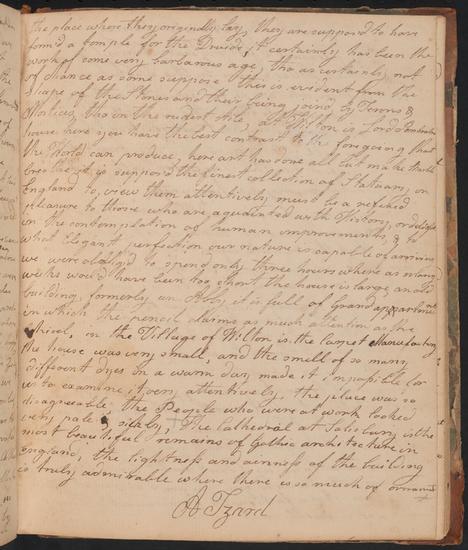 the place where they originally lay, they are supposed to have
form'd a temple for the Druids, it certainly has been the
work of some very barbarous age, tho as certainly not
of chance as some suppose this is evident from the
shape of the Stones and their being join'd by Tenons &
Mortices, tho in the rudest stile, at Wilton is Lord
house here you have the best contrast to the foregoing that
the World can produce, here art has done all but make marble
breathe it is supposed the finest collection of Statuary in
England to view them attentively must be a refined
pleasure to those who are aquainted with History, or delight
in the contemplation of human improvements, & to
what Elegant perfection our nature is capable of arriving
we were oblidg'd to spend only three hours where as many
weeks would have been too short the house is large, an old
building, formerly an it is full of Grand apartments
in which the pencil claims as much attention as the
Chisel, in the Village of Wilton is the Carpet Manufactory
the house was very small, and the smell of so many
different dyes in a warm day, made it impossible for
us to examine it very attentively, the place was so
disagreeable, the People who were at work looked
very pale & sickly, The Cathedral at Salisbury is the
most beautiful remains of Gothic architecture in
England, the lightness and airiness of the building
is truly admirable where there is so much of ornament
A Izard